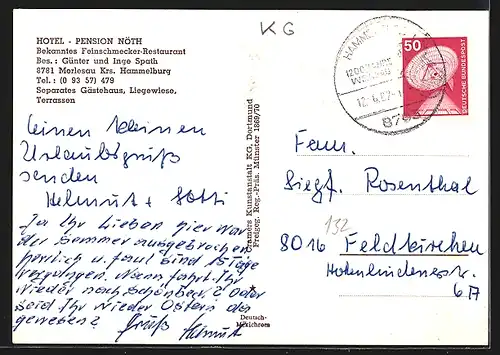 HOTEL - PENSION NÖTH
Bekanntes Feinschmecker-Restaurant
Bes.: Günter und Inge Spath
8781 Morlesau Krs. Hammelburg
Tel.: (0 93 57) 479
Separates Gästehaus, Liegewiese,
Terrassen
KG
50
DEUTSCHE BUNDESPOST
12.6.82
Einen kleinen
Urlaubsgruß
senden
Helmut + Lotti
Ja Ihr Lieben hier war
der Sommer ausgebrochen
herrlich u. faul sind 15 Tage
vergangen. Wann fahrt Ihr
wieder nach Schönber? Oder
seid Ihr wieder Ostern da
gewesen? Gruß Helmut
Cramers Kunstanstalt KG, Dortmund
Freigeg. Reg.-Präs. Münster 1869/70
Deutsch-
Mexichrom
Fam.
Siegf. Rosenthal
132
8016 Feldkirchen
Hohenlindenerstr.
6A